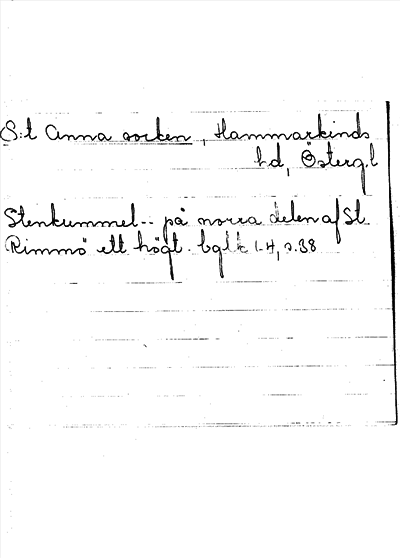 S:t Anna socken, Hammarkinds
hd, Östergl
Stenkummel-- på norra delen af St.
Rimmö ett högt. bgtk 1-4, s.38